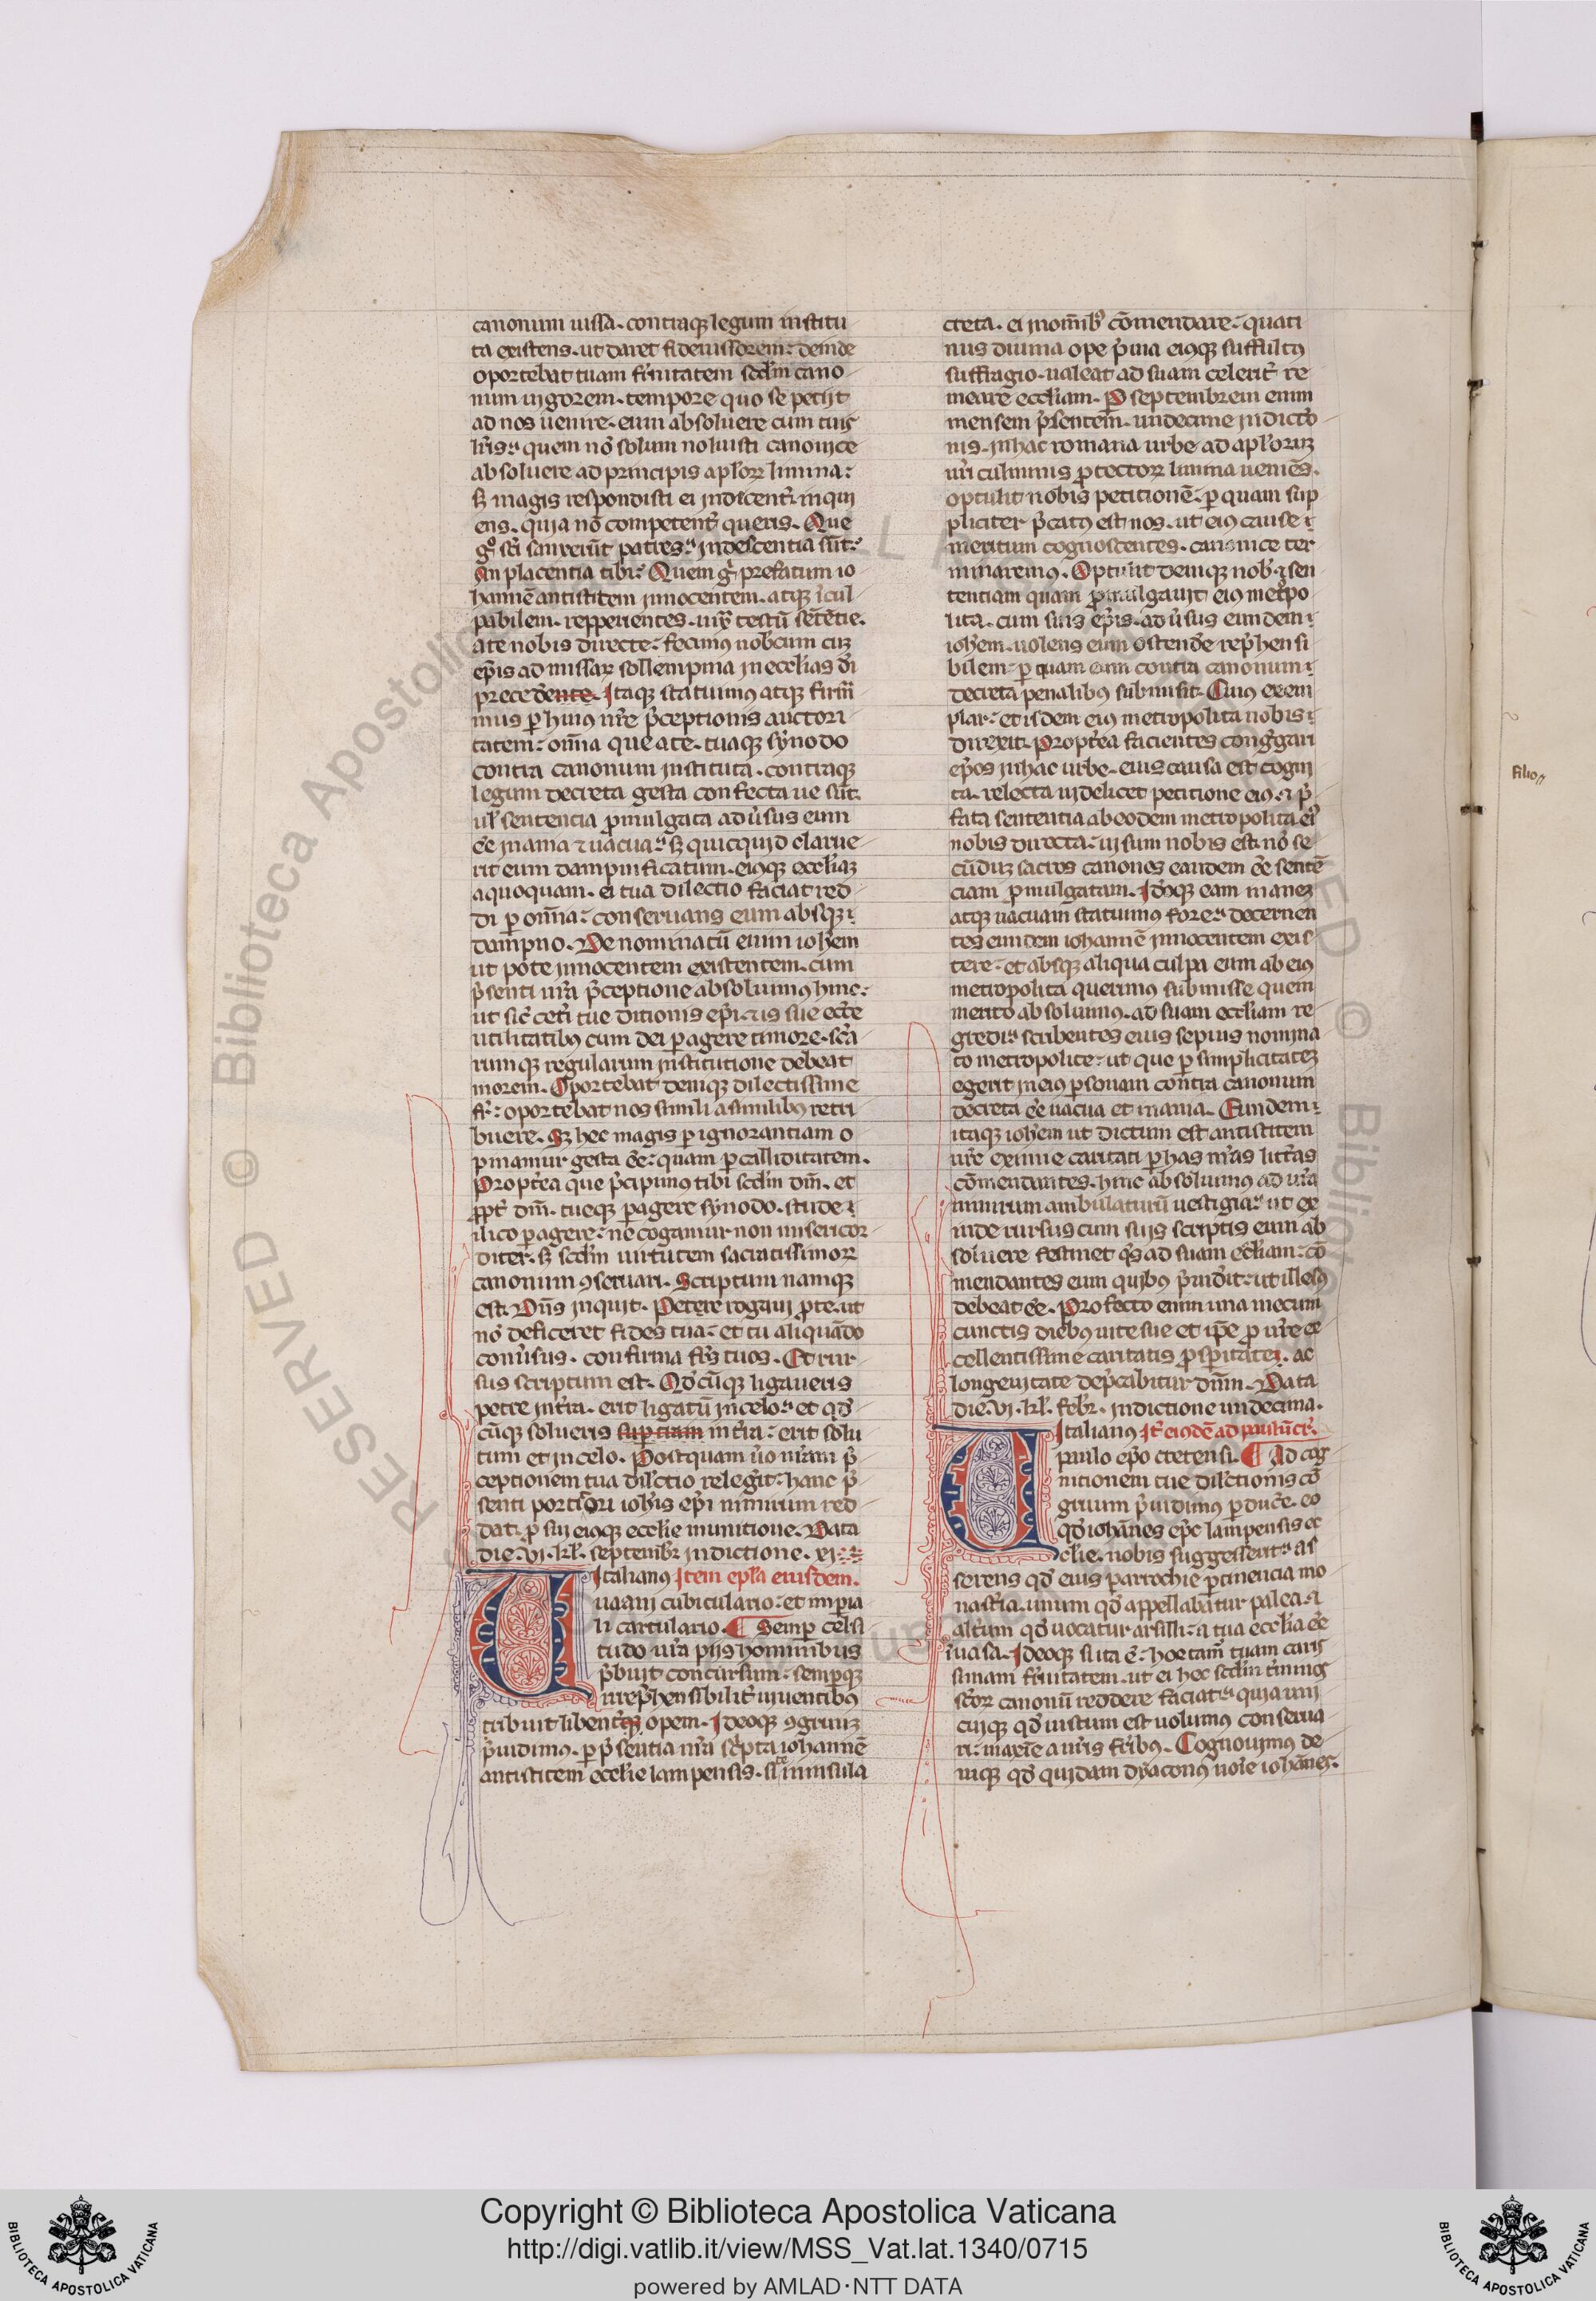 canonum iussa. contraq; legum institu
ta existens. ut daret fideiussorem: deinde
oportebat tuam fr̄nitatem scd̄m cano
num uigorem. tempore quo se petijt
ad nos uenire. eum absoluere cum tuis
lr̄is. quem nō solum noluisti canonice
absoluere ad principis apl̄oꝝ limina:
sꝫ magis respondisti ei indecent̄. inqui
ens. quia nō competent̄ queris. Que
gͦ sc̄i sanxerūt patres. indescentia sūt:
An placentia tibi: Quem gͦ prefatum io
hannē antistitem innocentem. atq; icul
pabilem. repperientes. uirꝫ testū sētētie.
a te nobis directe: fecimus nobcum cuꝫ
ep̄is ad missaꝝ sollempnia in ecclias dī
precedente. Itaq; statuimus atq; firm̄
mus ꝑ huius nr̄e p̄ceptionis auctori
tatem: om̄ia que a te. tuaq; synodo
contra canonum instituta. contraq;
legum decreta gesta confecta ue sūt.
ul̄ sentencia ꝓmulgata aduꝰsus eum
eē inania ⁊ uacua. sꝫ quicquid clarue
rit eum dampnificatum. eiusq; eccl̄iaꝫ
a quoquam. ei tua dilectio faciat red
di ꝑ om̄ia: conseruans eum absq;
dampno. Denominatū eum ioh̄em
ut pote innocentem existentem. cum
p̄senti nr̄a p̄ceptione absoluimus hinc:
ut sic cet̄i tue ditionis ep̄i. ⁊ is sue ecc̄le
utilitatibꝰ cum dei ꝑagere timore. sc̄a
rumq; regularum institutione debeat
morem. Oportebat deniq; dilectissime
fr̄: oportebat nos simili a similibꝰ retri
buere. Sꝫ hec magis ꝑ ignorantiam o
pinamur gesta eē: quam ꝑ calliditatem.
Propt̄ea que p̄cipimus tibi scd̄m dm̄. et
ꝓpt̄ dm̄. tueq; ꝑagere synodo. stude
ilico ꝑagere: ne cogamur non misericor
diter. sꝫ scd̄m uirtutem sacratissimoꝝ
canonum ꝯseruari. Scriptum namq;
est. Dn̄s inquit. Petere rogaui ꝓ te. ut
nō deficeret fides tua: et tu aliquādo
conuꝰsus. confirma fr̄s tuos. Et rur
sus scriptum est. Qd̄cūq; ligaueris
petre in t̄ra. erit ligatū in celo. et qd̄
cūq; solueris super terram in t̄ra: erit solu
tum et in celo. Postquam ūo nr̄am p̄
ceptionem tua dilc̄tio relegit: hanc p̄
senti portitori ioh̄is ep̄i nimirum red
dat. ꝓ sui eiusq; eccl̄ie munitione. Data
die. vi. kl̄. septembꝝ indictione. xi
Uitalianus Item epl̄a eiusdem.
uaani cubiculario: et imperia
li cartulario. ¶ Semꝑ celsi
tudo ur̄a pijs hominibus
p̄buit concursum: semperq;
irrep̄hensibilit̄ uiuentibꝰ
tribuit libent̄ opem. Ideoq; ꝯgruuꝫ
p̄uidimus. ꝑ p̄sentia nr̄a sc̄pta iohannē
antistitem eccl̄ie lampensis. sr̄ in insula
creta. ei inomībꝰ cōmendare: quati
nus diuina ope p̄uia eiusq; suffultꝰ
suffragio. ualeat ad suam celerit̄ re
meare eccl̄iam. P septembrem enim
mensem p̄sentem. undecime indictio
nis. in hac romana urbe ad apl̄oruꝫ
uri culminis ꝓtectoꝝ limina ueniēs.
optulit nobis petitionē: ꝑ quam sup
pliciter p̄catꝰ est nos. ut eiꝰ cause
meritum cognoscentes. canonice ter
minaremꝰ. Optulit deniq; nob̄. ⁊ sen
tentiam quam ꝓmulgauit eiꝰ met̄po
lita. cum suis ep̄is. aduꝰsus eundem
ioh̄em. uolens eum ostend̄e rep̄hensi
bilem: ꝑ quam eum contra canonum
decreta penalibꝰ submisit. Cuius exem
plar: et isdem eiꝰ metropolita nobis
direxit. Propt̄ea facientes cong̓gari
ep̄os in hac urbe. eius causa est cogni
ta. relecta uidelicet petitione eiꝰ. ⁊ p̄
fata sententia ab eodem metropolita eiꝰ
nobis directa: uisum nobis est. nō se
cūduꝫ sacros canones eandem eē sentē
ciam ꝓmulgatam. Id̄oq; eam inaneꝫ
atq; uacuam statuimus fore. decernen
tes eundem iohannē innocentem exis
tere: et absq; aliqua culpa eum ab eiꝰ
metropolita querimus submisse quem
merito absoluimꝰ. ad suam eccl̄iam re
gredi. scribentes eius sepius nomina
to metropolite: ut que ꝑ simplicitateꝫ
egerit in eiꝰ ꝑsonam contra canonum
decreta eē uacua et inania. Eundem
itaq; ioh̄em ut dictum est antistitem
ur̄e eximie caritati ꝑ has nr̄as litt̄as
cōmendantes. hinc absoluimꝰ ad ur̄a
nimirum ambulaturū uestigia. ut ex
inde rursus cum suis scriptis eum ab
soluere festinet qͣs ad suam ecl̄iam: cō
mendantes eum quibꝰ p̄uid̄it: ut illesꝰ
debeat eē. Profecto enim una mecum
cunctis diebꝰ uite sue et ip̄e ꝓ ur̄e ex
cellentissime caritatis ꝓsperitateꝫ. ac
longeuitate dep̄cabitur dm̄m. Data
die. vi. kl̄. febꝝ. indictione undecima.
Uitalianus It̄ eiusdē ad paulū cr̄.
paulo ep̄o cretensi. ¶ Ad cog
nitionem tue dilc̄tionis cō
gruum p̄uidimus ꝑduc̄e. eo
qd̄ iohānes ep̄c lampensis ec
cl̄ie. nobis suggesserit. as
serens qd̄ eius parrochie ꝑtinencia mo
nast̄ia. unum qd̄ appellabatur palea. ⁊
alt̄um qd̄ uocatur arsilli: a tua eccl̄ia eē
inuasa. Ideoq; si ita ē: hortam̄ tuam caris
simam fr̄nitatem. ut ei hec scd̄m t̄minos
sc̄oꝝ canonū reddere faciat. quia uni
cuiq; qd̄ iustum est uolumus conserua
ri: maxīe a nr̄is fr̄ibꝰ. Cognouimus de
niq; qd̄ quidam dyaconꝰ noīe iohānes.
filio
Copyright © Biblioteca Apostolica Vaticana
http://digi.vatlib.it/view/MSS_Vat.lat.1340/0715
powered by AMLAD·NTT DATA